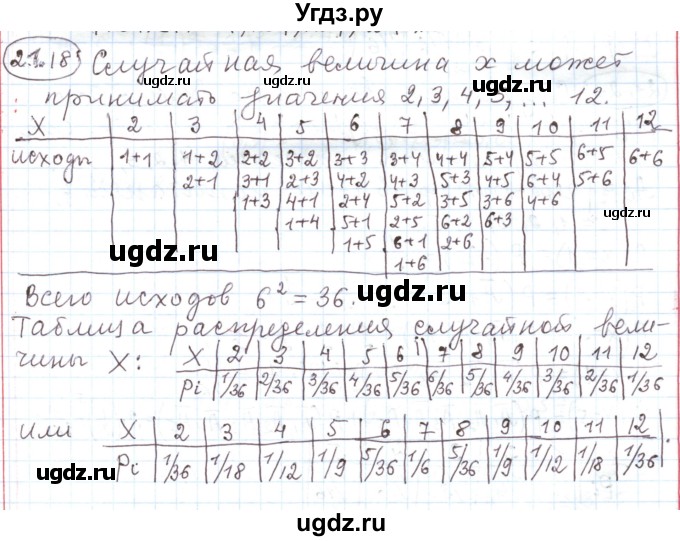 Угдз.ру
21.18 Случайная величина x может
принимать значения 2, 3, 4, 5, ... 12.
X 2 3 4 5 6 7 8 9 10 11 12
исходы 1+1 1+2 2+2 3+2 3+3 3+4 4+4 5+4 5+5 6+5 6+6
2+1 3+1 2+3 4+2 4+3 5+3 4+5 6+4 5+6
1+3 4+1 2+4 5+2 3+5 3+6 4+6
1+4 5+1 2+5 6+2 6+3
1+5 6+1 2+6
1+6
Всего исходов 6² = 36.
Таблица распределения случайной вели-
чины X: X 2 3 4 5 6 7 8 9 10 11 12
Pi 1/36 2/36 3/36 4/36 5/36 6/36 5/36 4/36 3/36 2/36 1/36
или X 2 3 4 5 6 7 8 9 10 11 12
Pi 1/36 1/18 1/12 1/9 5/36 1/6 5/36 1/9 1/12 1/18 1/36.
ugdz.ru
ugdz.ru
ugdz.ru
ugdz.ru
ugdz.ru
ugdz.ru
ugdz.ru
ugdz.ru
ugdz.ru
ugdz.ru
ugdz.ru
ugdz.ru